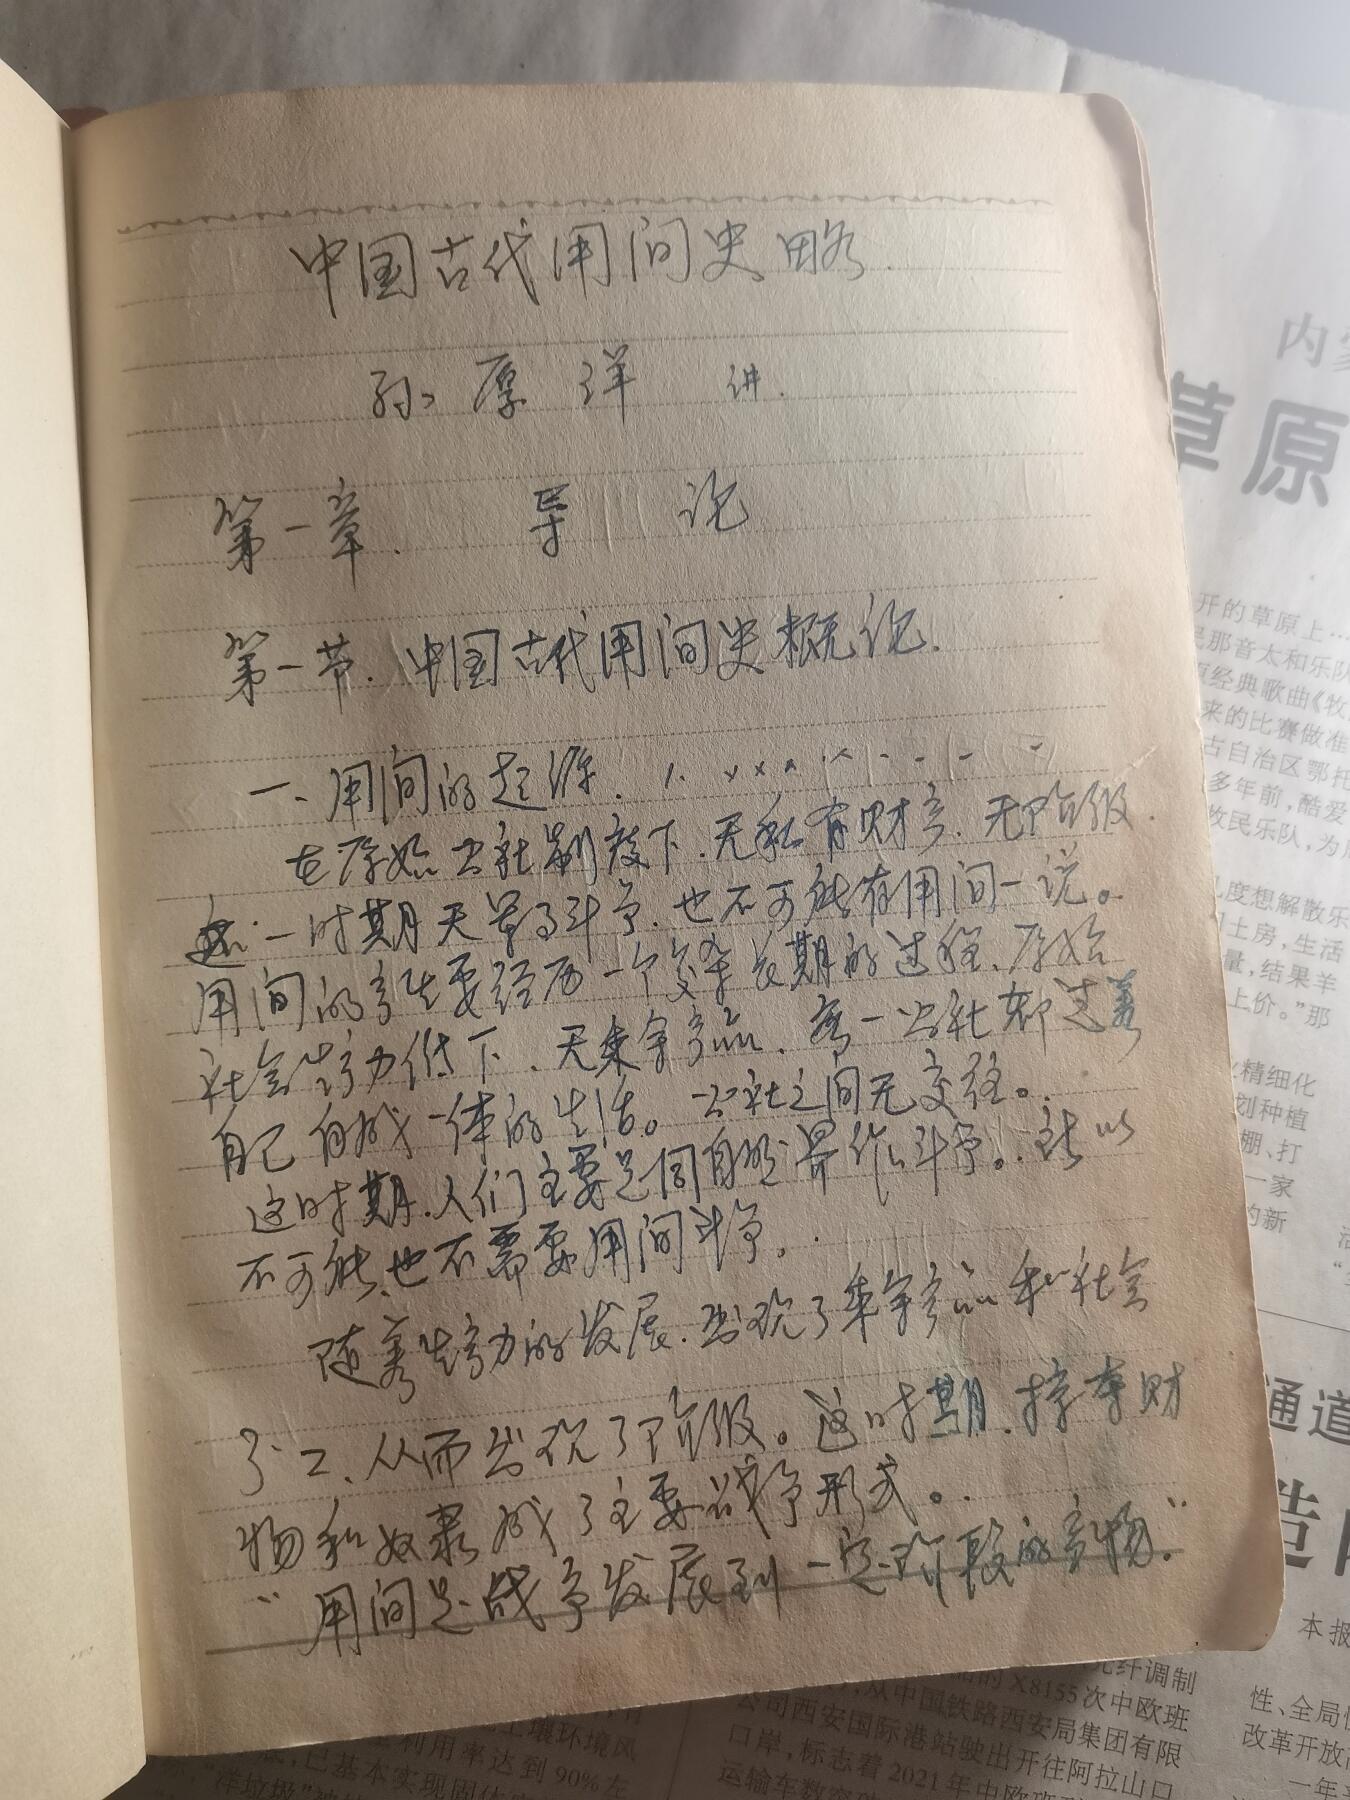 中国古代用间史略.
孙厚洋 讲.
第一章. 导论
第一节. 中国古代用间史概论.
一、用间的起源.
在原始公社制度下.无私有财产.无阶级.
这一时期无军事斗争.也不可能有用间一说。
用间的产生要经历一个复杂长期的过程、原始
社会生产力低下、无乘余产品、每一公社都过着
自己自成一体的生活。公社之间无交往。
这时期.人们主要是同自然界作斗争。所以
不可能也不需要用间斗争。
随着生产力的发展.出现了乘余产品和社会
分工、从而出现了阶级。这时期.掠夺财
物和奴隶成了主要战争形式。
“用间是战争发展到一定阶段的产物.”
内蒙
草原
开的草原上…
民那音太和乐队
经典歌曲《牧
来的比赛做准
古自治区鄂托
多年前,酷爱
牧民乐队,为
度想解散乐
土房,生活
量,结果羊
上价。”那
精细化
划种植
棚、打
一家
的新
通道
造
本报
光纤调制
X8155次中欧班
从中国铁路西安局集团有限
公司西安国际港站驶出开往阿拉山口
口岸,标志着2021年中欧班
运输车数突
性、全局
改革开放
一年
土壤环境风
利用率达到90%左
已基本实现固体
“洋垃圾”